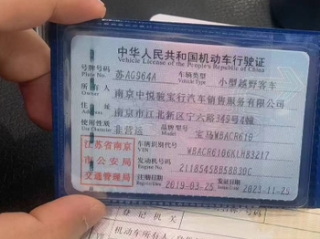 中华人民共和国机动车行驶证
Vehicle License of the People's Republic of China
号牌号码 苏AG964A 车辆类型 小型越野客车
Plate No. Vehicle Type
所有人 南京中悦驰宝行汽车销售服务有限公司
Owner
住址 南京市江北新区宁六路
使用性质 非营运 品牌型号 宝马WBACR610
Use Character Model
江苏省南京
市公安局
交通管理局
车辆识别代号
VIN
发动机号码
Engine No.
注册日期 2019-03-25 发证日期 2021-11-25
登记机关
机动车所有人